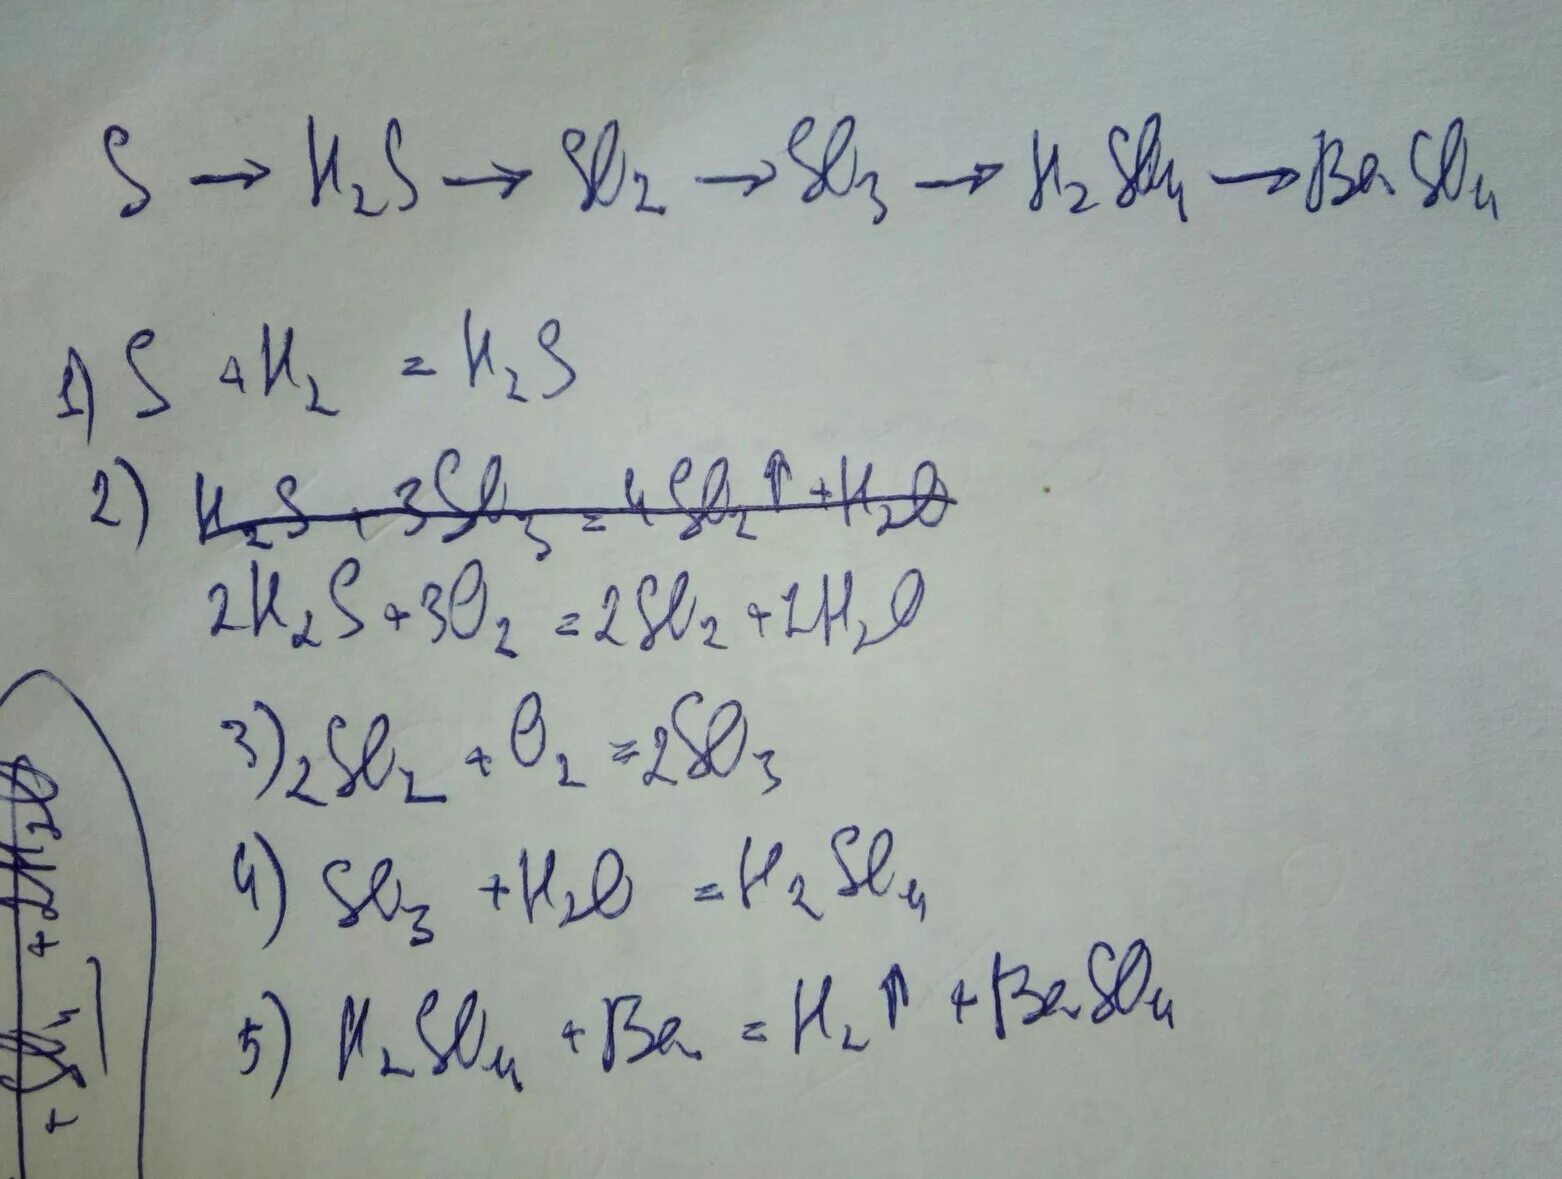 S → H₂S → SO₂ → SO₃ → H₂SO₄ → BaSO₄
1) S + H₂ = H₂S
2) H₂S + 3SO₃ = 4SO₂↑ + H₂O
2H₂S + 3O₂ = 2SO₂ + 2H₂O
3) 2SO₂ + O₂ = 2SO₃
4) SO₃ + H₂O = H₂SO₄
5) H₂SO₄ + Ba = H₂↑ + BaSO₄
+ 2H₂O